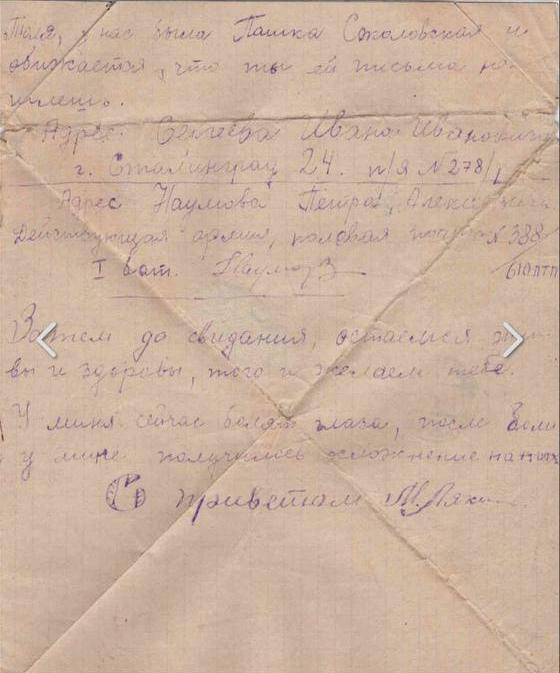 Толя, у нас была Пашка Соколовская и
обижается, что ты ей письма не
шлешь.
Адрес Сергеева Ивана Ивановича
г. Сталинград 24. п/я №278/
Адрес Наумова Петра Алекс
Действующая армия, полевая почта №388
I бат. 610 птп
Затем до свидания, остаемся жи
вы и здоровы, того и желаем тебе.
У миня сейчас болят глаза, после
у мине получилось осложнение на
С приветам М.